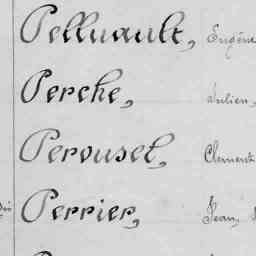 Pelluault, Eugène
Perche, Julien,
Perousel, Clément
Perrier, Jean,